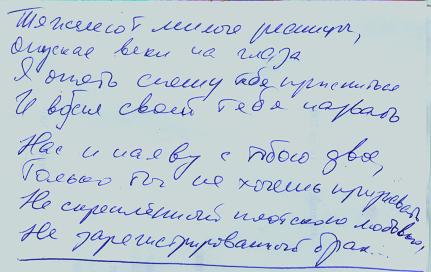 Тяжелеют милые ресницы,
опуская веки на глаза
Я опять спешу тебе присниться
И вбуя своей тебя назвать
Нас и наяву с тобою двое,
Только ты не хочешь признавать
Не скреплённый плотскою любовью,
Не зарегистрированный брак...